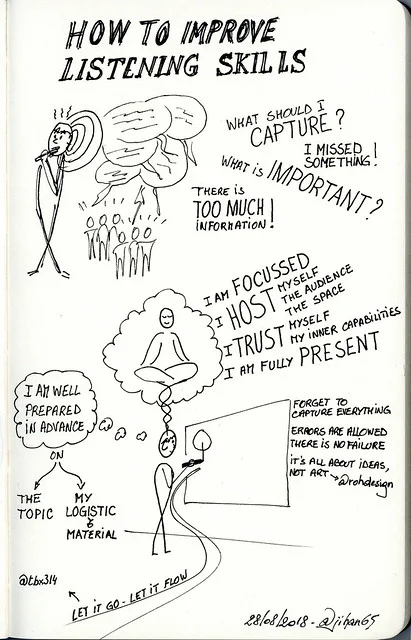 HOW TO IMPROVE
LISTENING SKILLS
WHAT SHOULD I
CAPTURE?
I MISSED
SOMETHING!
WHAT is IMPORTANT?
THERE is
TOO MUCH
INFORMATION!
I AM FOCUSSED
I HOST MYSELF
THE AUDIENCE
THE SPACE
I TRUST MYSELF
MY INNER CAPABILITIES
I AM FULLY PRESENT
I AM WELL
PREPARED
IN ADVANCE
ON
THE
TOPIC
MY
LOGISTIC
&
MATERIAL
FORGET TO
CAPTURE EVERYTHING
ERRORS ARE ALLOWED
THERE IS NO FAILURE
IT'S ALL ABOUT IDEAS,
NOT ART → @rohdesign
@tbx314
LET IT GO - LET IT FLOW
28/08/2018 - @jihan65